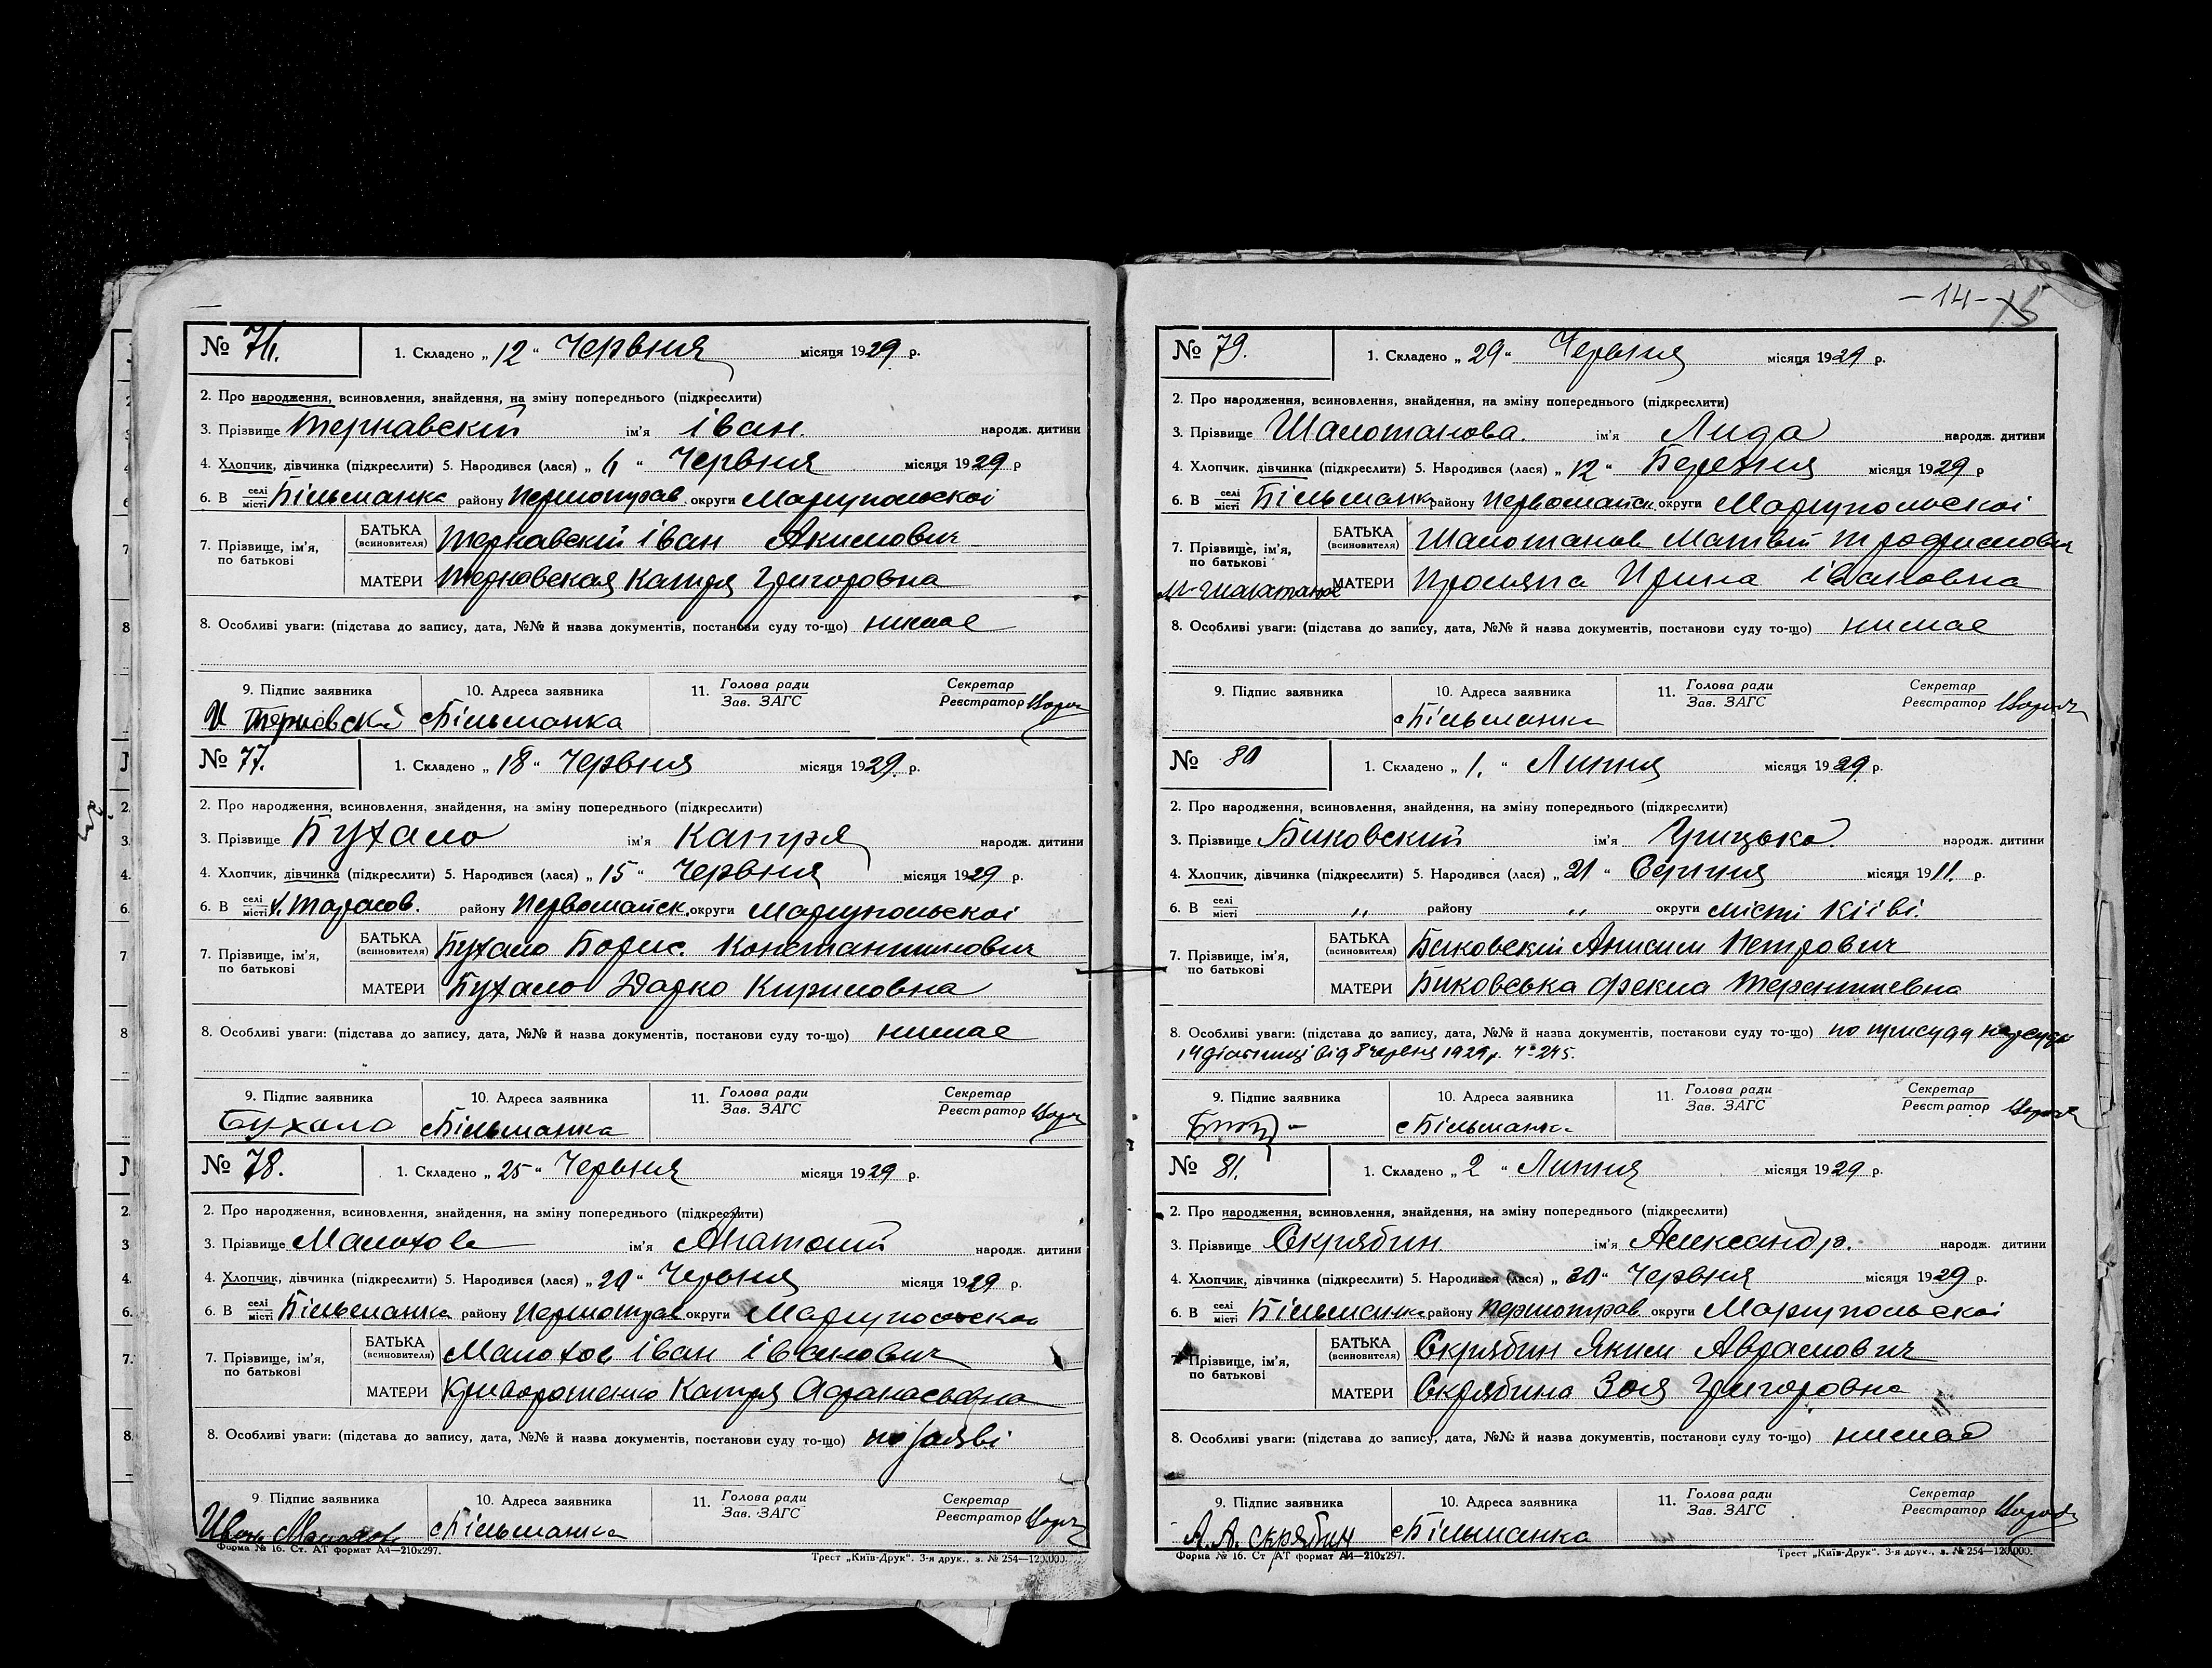 № 76.
1. Складено „12“ Червня місяця 1929 р.
2. Про народження, всиновлення, знайдення, на зміну попереднього (підкреслити)
3. Прізвище Тернавскій ім'я іван. народж. дитини
4. Хлопчик, дівчинка (підкреслити) 5. Народився (лася) „6“ Червня місяця 1929 р
6. В селі місті Більманка району округи Маріупольскоі
7. Прізвище, ім'я, по батькові
БАТЬКА (всиновителя) Тернавскій іван Акимович
МАТЕРИ Терновская Катря Григоровна
8. Особливі уваги: (підстава до запису, дата, №№ й назва документів, постанови суду то-що) нимае
9. Підпис заявника 10. Адреса заявника 11. Голова ради Зав. ЗАГС Секретар Реєстратор
И Терновский с Більманка
№ 77.
1. Складено „18“ Червня місяця 1929. р.
2. Про народження, всиновлення, знайдення, на зміну попереднього (підкреслити)
3. Прізвище Бухало ім'я Катря народж. дитини
4. Хлопчик, дівчинка (підкреслити) 5. Народився (лася) „15“ Червня місяця 1929 р.
6. В селі місті х. Тарасов. району Первомайск. округи Маріупольскоі
7. Прізвище, ім'я, по батькові
БАТЬКА (всиновителя) Бухало Борис. Константинович
МАТЕРИ Бухало Дарко Кириловна
8. Особливі уваги: (підстава до запису, дата, №№ й назва документів, постанови суду то-що) нимае
9. Підпис заявника 10. Адреса заявника 11. Голова ради Зав. ЗАГС Секретар Реєстратор
Бухало с Більманка
№ 78.
1. Складено „25“ Червня місяця 1929 р.
2. Про народження, всиновлення, знайдення, на зміну попереднього (підкреслити)
3. Прізвище Малохов ім'я Анатолий народж. дитини
4. Хлопчик, дівчинка (підкреслити) 5. Народився (лася) „20“ Червня місяця 1929 р.
6. В селі місті Більманка району округи Маріупольскои
7. Прізвище, ім'я, по батькові
БАТЬКА (всиновителя) Малохов іван іванович
МАТЕРИ Катря Афанасьевна
8. Особливі уваги: (підстава до запису, дата, №№ й назва документів, постанови суду то-що) по заяві
9. Підпис заявника 10. Адреса заявника 11. Голова ради Зав. ЗАГС Секретар Реєстратор
Иван Малахов с Більманка
Форма № 16. Ст. АТ формат А4—210х297. Трест „Київ-Друк“. 3-я друк., з. № 254—120.000.
-14- 15
№ 79.
1. Складено „29“ Червня місяця 1929 р.
2. Про народження, всиновлення, знайдення, на зміну попереднього (підкреслити)
3. Прізвище Шалотанова. ім'я Лида народж. дитини
4. Хлопчик, дівчинка (підкреслити) 5. Народився (лася) „12“ Березня місяця 1929 р
6. В селі місті Більманка району Первомайск округи Маріупольскоі
7. Прізвище, ім'я, по батькові
БАТЬКА (всиновителя) Шалотанов Матвій Трофимович
МАТЕРИ Ирина івановна
8. Особливі уваги: (підстава до запису, дата, №№ й назва документів, постанови суду то-що) нимае
9. Підпис заявника 10. Адреса заявника 11. Голова ради Зав. ЗАГС Секретар Реєстратор
с Більманка
№ 80
1. Складено „1.“ Липня місяця 1929. р.
2. Про народження, всиновлення, знайдення, на зміну попереднього (підкреслити)
3. Прізвище Биковский ім'я Грицько. народж. дитини
4. Хлопчик, дівчинка (підкреслити) 5. Народився (лася) „21“ Серпня місяця 1911. р.
6. В селі місті „ району „ округи місті Кіїві.
7. Прізвище, ім'я, по батькові
БАТЬКА (всиновителя) Биковскій Анисим Петрович
МАТЕРИ Биковська Фекла Терентиевна
8. Особливі уваги: (підстава до запису, дата, №№ й назва документів, постанови суду то-що) по присуду нарсуда
14 дільниці від 8 червня 1929 р. ч. 245.
9. Підпис заявника 10. Адреса заявника 11. Голова ради Зав. ЗАГС Секретар Реєстратор
с Більманка
№ 81.
1. Складено „2“ Липня місяця 1929 р.
2. Про народження, всиновлення, знайдення, на зміну попереднього (підкреслити)
3. Прізвище Скрябин ім'я Александр. народж. дитини
4. Хлопчик, дівчинка (підкреслити) 5. Народився (лася) „30“ Червня місяця 1929 р.
6. В селі місті Більманка району округи Маріупольскоі
7. Прізвище, ім'я, по батькові
БАТЬКА (всиновителя) Скрябин Яким Аврамович
МАТЕРИ Скрябина Зоя Григоровна
8. Особливі уваги: (підстава до запису, дата, №№ й назва документів, постанови суду то-що) нимае
9. Підпис заявника 10. Адреса заявника 11. Голова ради Зав. ЗАГС Секретар Реєстратор
А. А. Скрябин с Більманка
Форма № 16. Ст. АТ формат А4—210х297. Трест „Київ-Друк“. 3-я друк., з. № 254—120.000.